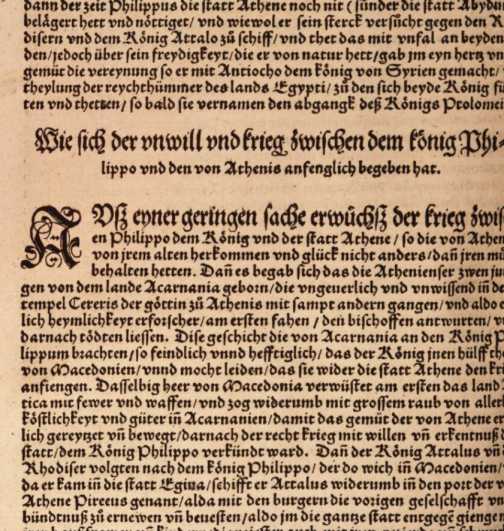 dann der zeit Philippus die statt Athene noch nit (sunder die statt Abydu
belägert hett vnd nöttiget/ vnd wiewol er sein sterck versücht gegen den
disern vnd dem König Attalo zů schiff/ vnd thet das mit vnfal an beyden
den/jedoch über sein freydigkeyt/die er von natur hett/gab jm eyn hertz vn
gemüt die vereynung so er mit Antiocho dem könig von Syrien gemacht/
theylung der reychthümmer des lands Egypti/ zů den sich beyde König
ten vnd thetten/ so bald sie vernamen den abgangk deß Königs Ptolomei
Wie sich der vnwill vnd krieg zwischen dem könig Phi-
lippo vnd den von Athenis anfenglich begeben hat.
AVß eyner geringen sache erwůchsß der krieg zwis
en Philippo dem König vnd der statt Athene / so die von Athen
von jrem alten herkommen vnd glück nicht anders/ dañ jren mů
behalten hetten. Dañ es begab sich das die Athenienser zwen ju
gen von dem lande Acarnania geborn/die vngeuerlich vnd vnwissend iñ de
tempel Cereris der göttin zů Athenis mit sampt andern gangen/ vnd aldo
lich heymlichkeyt erforscher/am ersten fahen / den bischoffen antwurten/ v
darnach tödten liessen. Dise geschicht die von Acarnania an den König P
lippum brachten/so feindlich vnnd hefftiglich/ das der König jnen hülff th
von Macedonien/ vnnd mocht leiden/das sie wider die statt Athene den kri
anfiengen. Dasselbig heer von Macedonia verwüstet am ersten das land
tica mit fewer vnd waffen/ vnd zog widerumb mit grossem raub von allerl
köstlichkeyt vnd güter iñ Acarnanien/damit das gemüt der von Athene er
lich gereytzet vñ bewegt/darnach der recht krieg mit willen vñ erkentnuß d
statt/dem König Philippo verkündt ward. Dañ der König Attalus vñ
Rhodiser volgten nach dem könig Philippo/ der do wich iñ Macedonien/
da er kam iñ die statt Egina/schifft er Attalus widerumb iñ den port der v
Athene Pireeus genant/alda mit den burgern die vorigen geselschafft vn
bündtnuß zů ernewern vñ beuesten/aldo jm die gantze statt entgegē gienge